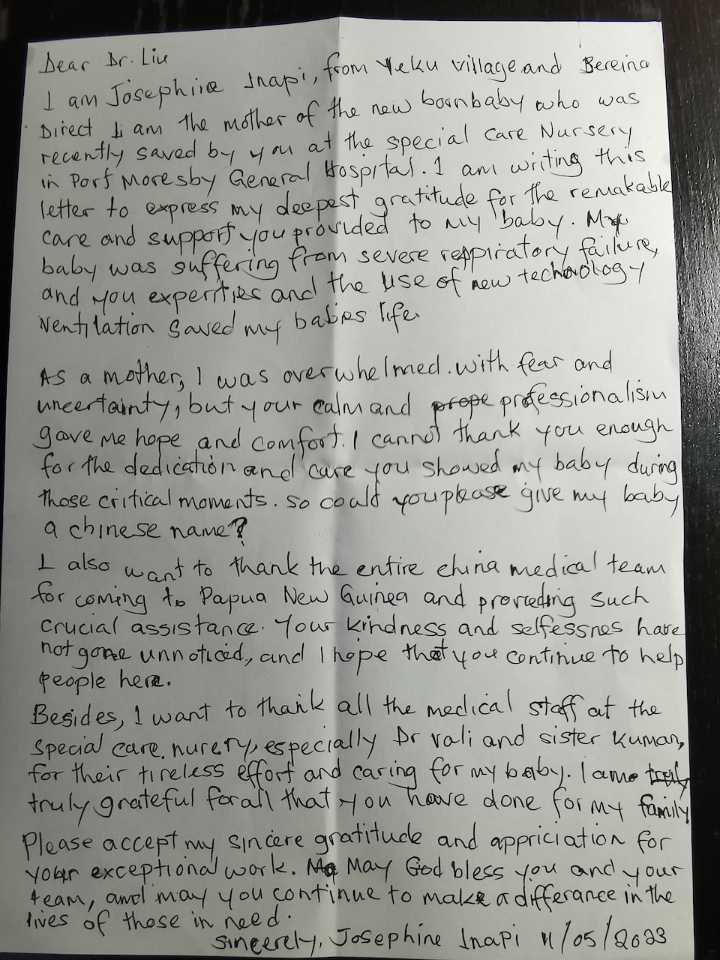 Dear Dr. Liu
I am Josephine Inapi, from Yeku village and Bereina
Direct I am the mother of the new boonbaby who was
recently saved by you at the special care Nursery
in Port Moresby General Hospital. I am writing this
letter to express my deepest gratitude for the remakable
care and support you provided to my baby. My
baby was suffering from severe reppiratory failure,
and you experities and the use of new technology
ventilation saved my babies life.
As a mother, I was overwhelmed. with fear and
uncertainty, but your calm and prope professionalism
gave me hope and comfort. I cannot thank you enough
for the dedication and care you showed my baby during
those critical moments. so could you please give my baby
a chinese name?
I also want to thank the entire china medical team
for coming to Papua New Guinea and proveding such
crucial assistance. Your kindness and selfessnes have
not gone unnoticed, and I hope that you continue to help
people here.
Besides, I want to thank all the medical staff at the
special care. nurery, especially Dr vali and sister Kuman,
for their tireless effort and caring for my baby. I am truly
truly grateful for all that you have done for my family
Please accept my sincere gratitude and appriciation for
your exceptional work. Ma May God bless you and your
team, and may you continue to make a differance in the
lives of those in need.
Sincerely, Josephine Inapi 11/05/2023